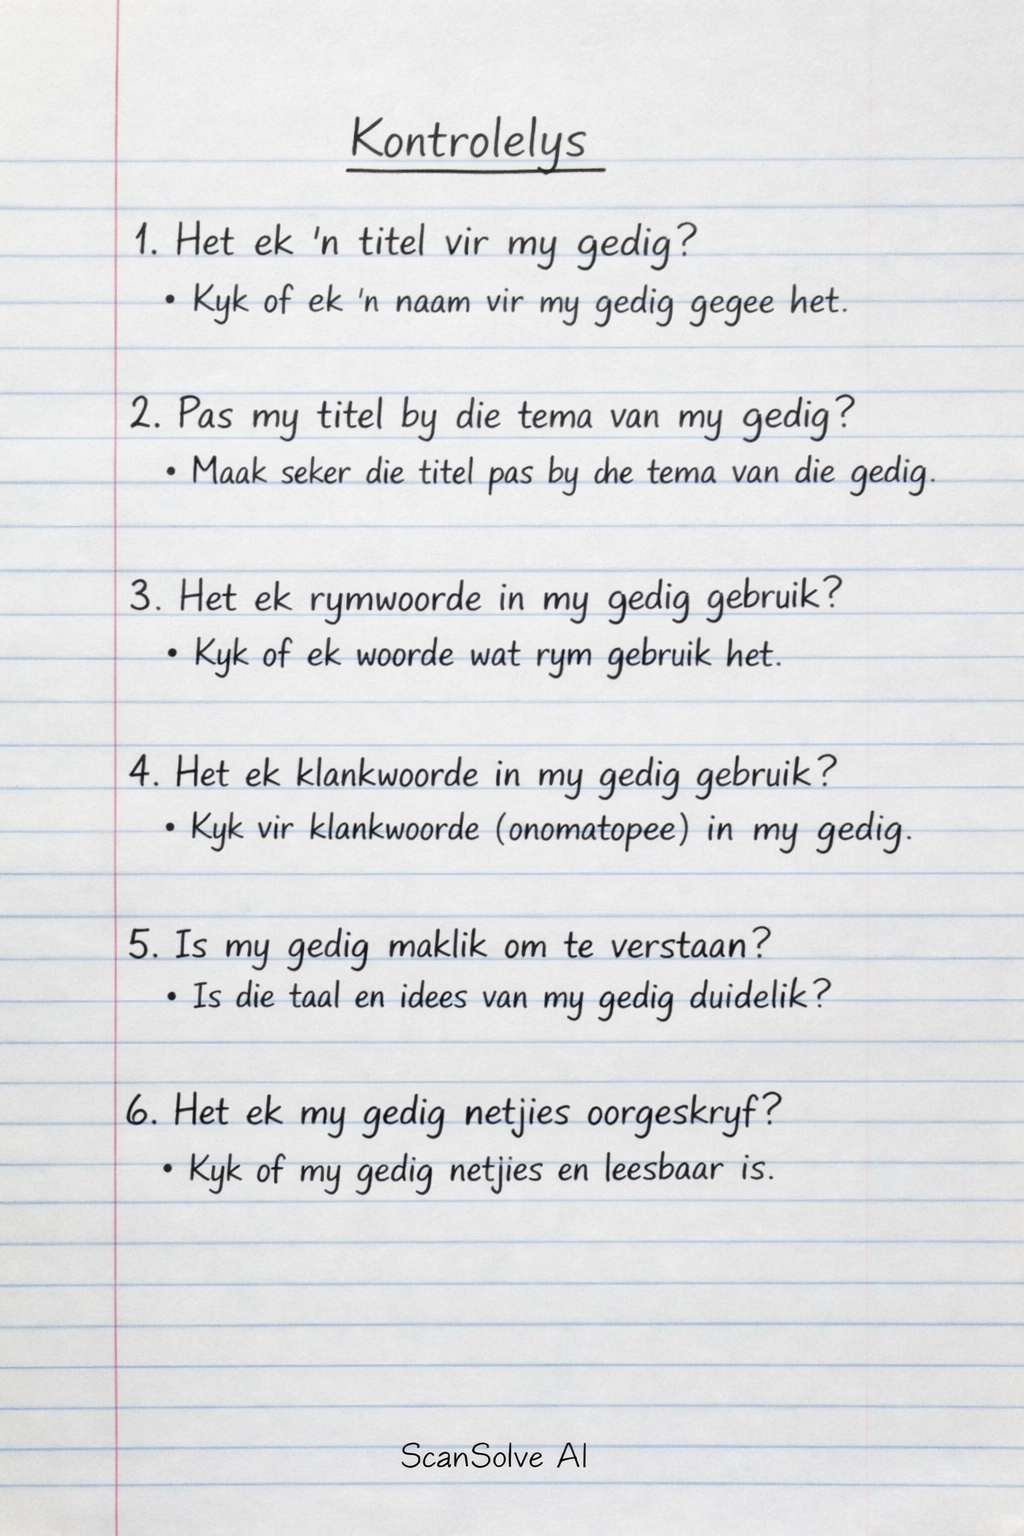 Kontrolelys
1. Het ek 'n titel vir my gedig?
• Kyk of ek 'n naam vir my gedig gegee het.
2. Pas my titel by die tema van my gedig?
• Maak seker die titel pas by che tema van die gedig.
3. Het ek rymwoorde in my gedig gebruik?
• Kyk of ek woorde wat rym gebruik het.
4. Het ek klankwoorde in my gedig gebruik?
• Kyk vir klankwoorde (onomatopee) in my gedig.
5. Is my gedig maklik om te verstaan?
• Is die taal en idees van my gedig duidelik?
6. Het ek my gedig netjies oorgeskryf?
• Kyk of my gedig netjies en leesbaar is.
ScanSolve AI